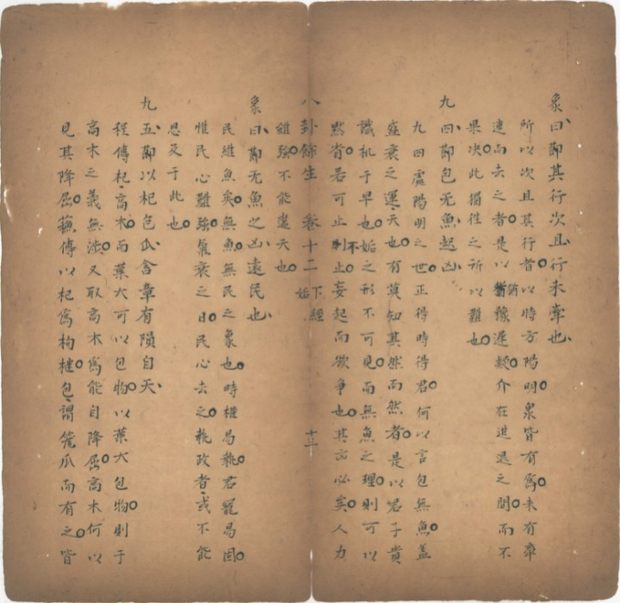 象曰鄮其行次且行未牽也
所以次且其行者以時方陽明衆皆有爲未有牽
連而去之者是以猶豫遲疑介在進退之間而不
果决此猖徃之所以難也
九四鄮包无魚起凶
九四處陽明之世正得時得君何以言包無魚蓋
盛衰之運天也有莫知其然而然者是以君子貴
識机于早也姤之形不可見而無魚之理則可以
黙省若可止則止不妄起而欲爭也其凶必矣人力
八卦餘生 卷十二 下經 姤 十三
維強不能違天也
象曰鄮无魚之凶遠民也
民維魚矣無魚無民之象也時權易執君寵易固
惟民心難強氣衰之日民心去之執政者或不能
思及于此也
九五鄮以杞包瓜含章有隕自天
程傳杞高木而葉大可以包物以葉大包物則于
高木之義無涉又取高木爲能自降屈高木何以
見其降屈蘓傳以杞爲枸檵包謂籠瓜而有之皆